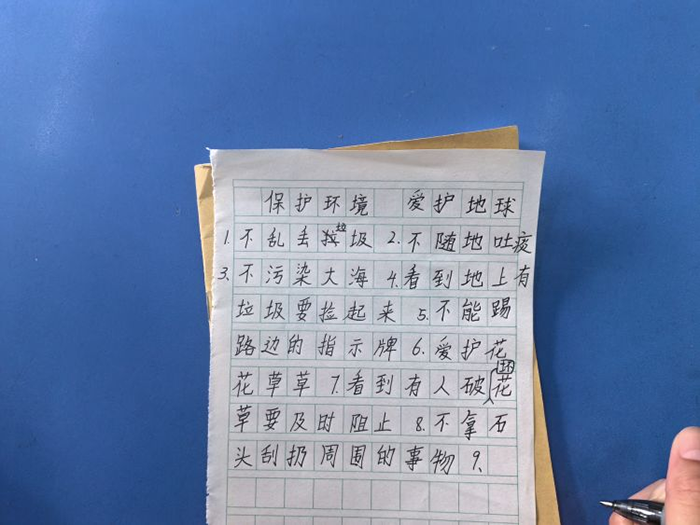 保护环境 爱护地球
1.不乱丢垃圾 2.不随地吐痰
3.不污染大海 4.看到地上有
垃圾要捡起来 5.不能踢
路边的指示牌 6.爱护花
花草草 7.看到有人破坏花
草要及时阻止 8.不拿石
头刮扔周围的事物 9、